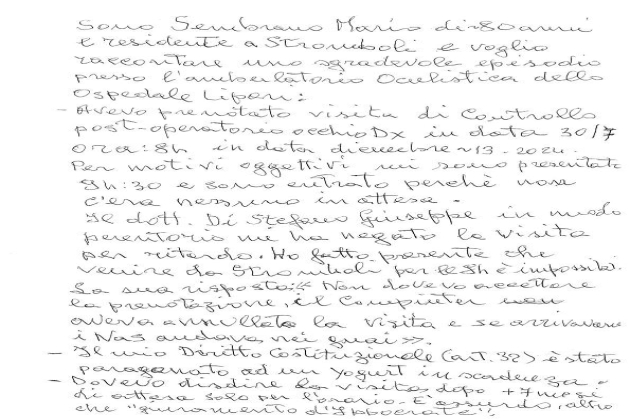 Sono Sembrano Mario di 80 anni
e residente a Stromboli e voglio
raccontare uno sgradevole episodio
presso l'ambulatorio Oculistica dello
Ospedale Lipari:
- Avevo prenotato visita di Controllo
post-operatorio occhio Dx in data 30/7
ora: 8h in data dicembre 13. 2024.
Per motivi oggettivi mi sono presentato
9h:30 e sono entrato perchè non
c'era nessuno in attesa.
Il dott. Di Stefano Giuseppe in modo
perentorio mi ha negato la visita
per ritardo. Ho fatto presente che
venire da Stromboli per le 8h è impossibil.
La sua risposta: "Non dovevo accettare
la prenotazione, il Computer
aveva annullato la visita e se arrivavano
i Nas andava nei guai».
- Il mio Diritto Costituzionale (art. 32) è stato
paragonato ad un yogurt in scadenza.
- Dovevo disdire la visita dopo +7 mesi
di attesa solo per l'orario. È assurdo, altro
che "giuramento d'Ippocrate".